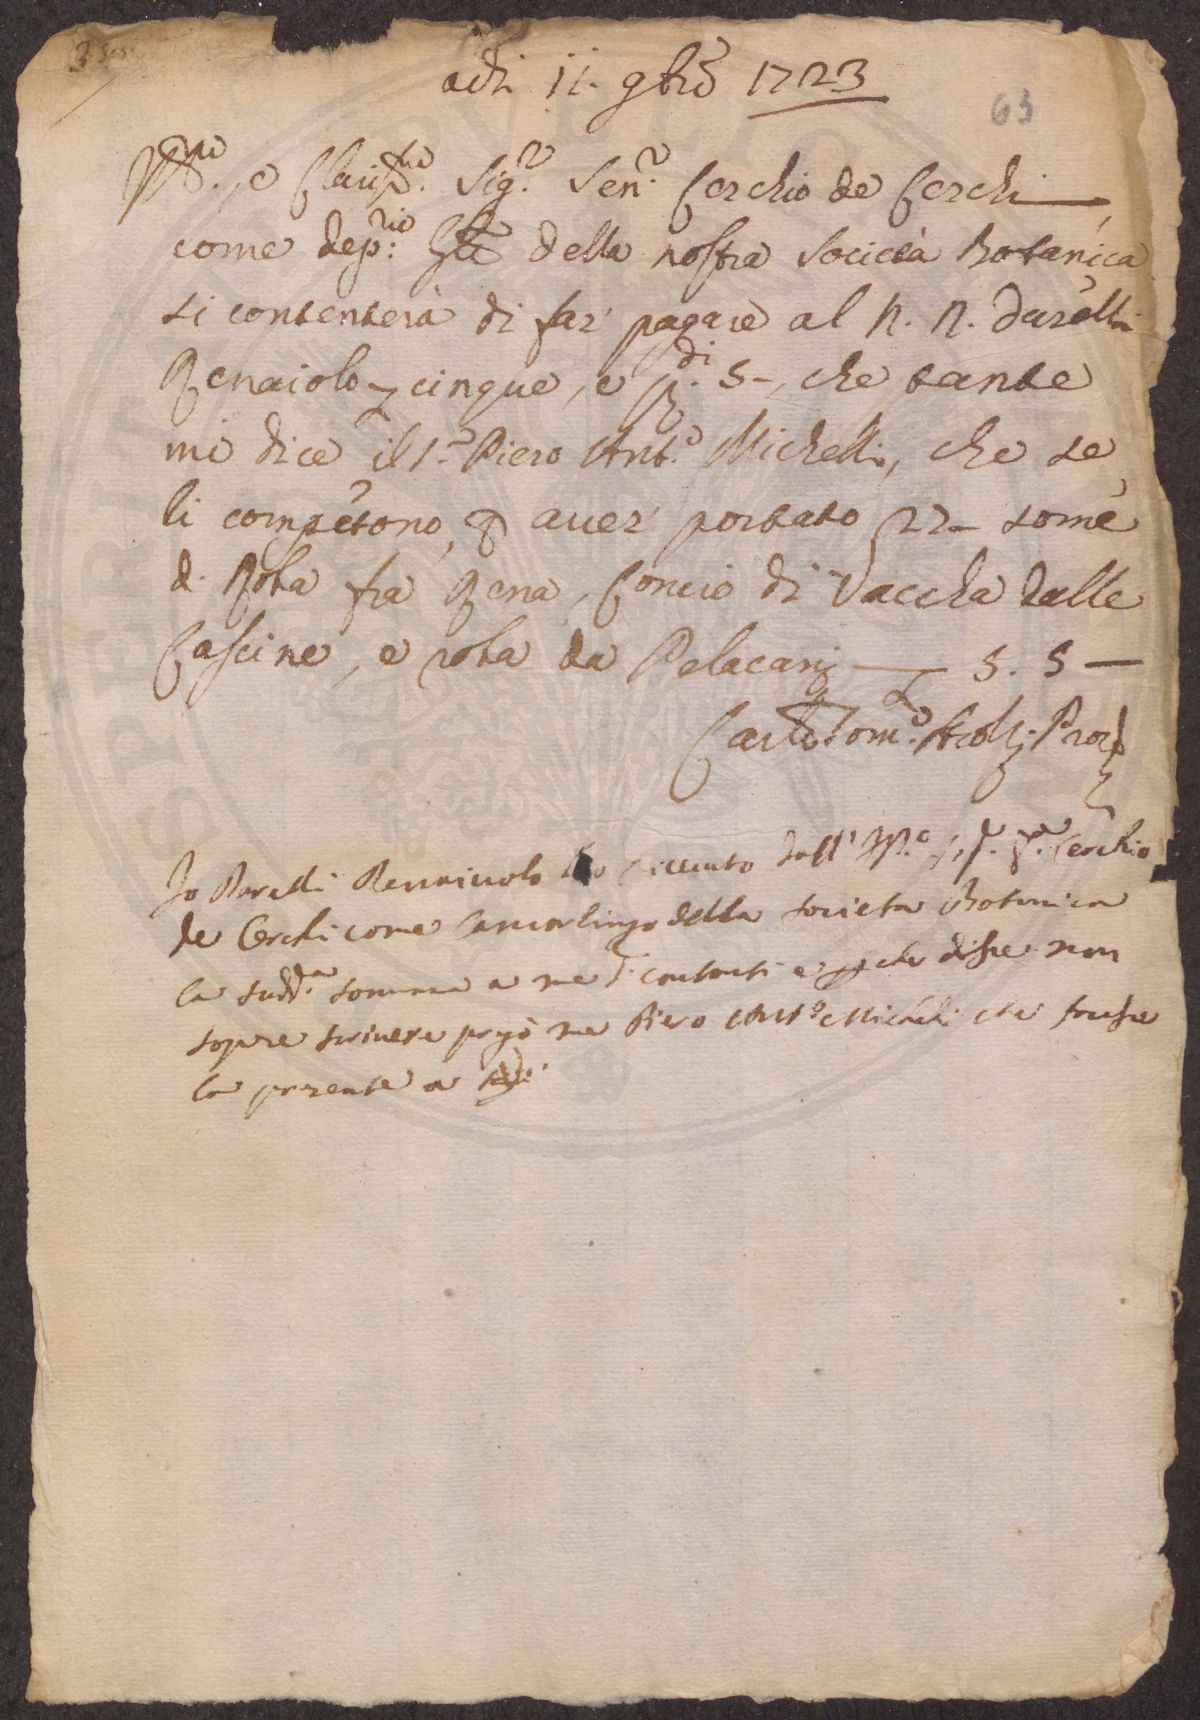 adi 11. 9bre 1723
63
Ill.mo, e Clariss.mo Sig.r Sen.r Cerchio de Cerchi
come dep.rio della nostra Società Botanica
si contenterà di far pagare al N. N. Barelli
Renaiolo cinque, e 5-, che tante
mi dice il S.r Piero Ant.o Michelli, che se
li compètono, p aver portato 22- some
di Roba fra Rena, Concio di Vaccha dalle
Cascine, e roba da Pelacani 5. 5 -
Carlo Tom.o
Io Barelli Renaiuolo ho riceuto dall' Ill.o Sig.r S.r Cerchio
de Cerchi come Camarlingo della società Botanica
la sudd.a somma a me d. contanti e p che disse non
sapere scrivere pregò me Piero Ant.o Micheli che facesse
la presente a